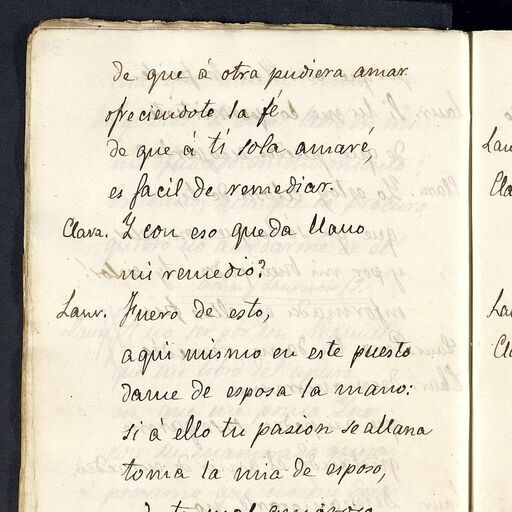 de que á otra pudiera amar
ofreciendote la fé
de que á tí sola amaré,
es facil de remediar.
Clara. Y con eso queda llano
mi remedio?
Laur. Fuero de esto,
aqui mismo en este puesto
dame de esposa la mano:
si á ello tu pasion se allana
toma la mia de esposo,
Lau
Cla
La
Cla